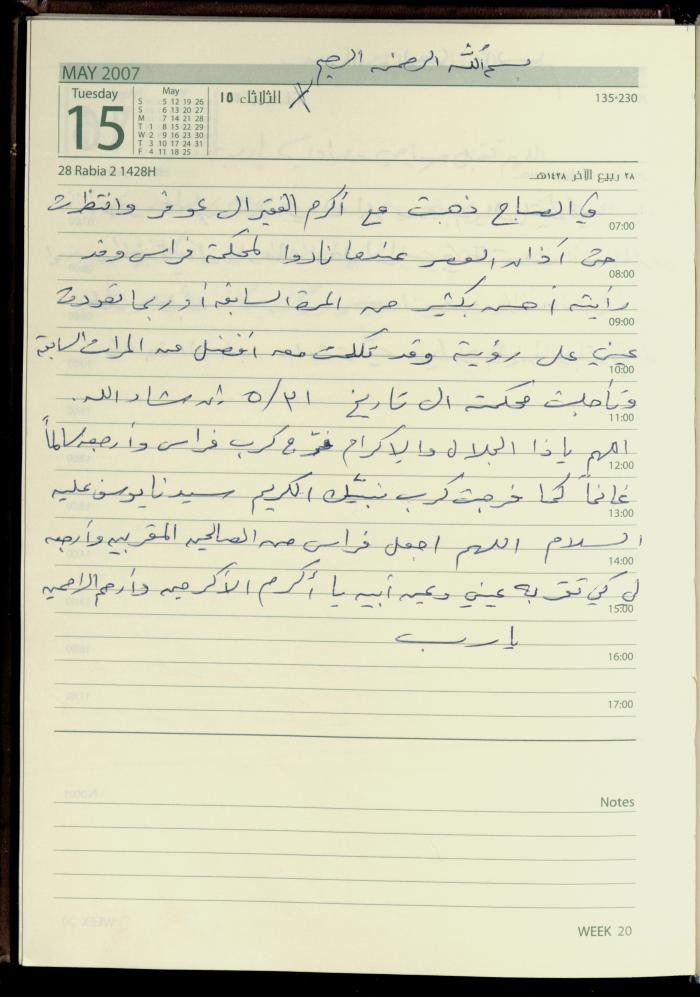 بسم الله الرحمن الرحيم
MAY 2007
Tuesday
15
May
S 5 12 19 26
S 6 13 20 27
M 7 14 21 28
T 1 8 15 22 29
W 2 9 16 23 30
T 3 10 17 24 31
F 4 11 18 25
الثلاثاء ١٥
135-230
28 Rabia 2 1428H
٢٨ ربيع الآخر ١٤٢٨هـ
في الصباح ذهبت مع أكرم الفقير إلى عوفر وانتظرت
07:00
حتى أذان العصر عندما نادوا لمحكمة فراس وقد
08:00
رأيته أحسن بكثير من المرة السابقة أو ربما تعودت
09:00
عيني على رؤيته وقد تكلمت معه أفضل من المرات السابقة
10:00
وتأجلت محكمته إلى تاريخ ٥/٣١ إن شاء الله.
11:00
اللهم ياذا الجلال والإكرام فرّج كرب فراس وأرجعه سالماً
12:00
غانماً كما فرجت كرب نبيّك الكريم سيدنا يوسف عليه
13:00
السلام اللهم اجعل فراس من الصالحين المقربين وأرجعه
14:00
لي كي تقر به عيني وعين أبيه يا أكرم الأكرمين وأرحم الراحمين
15:00
يا رب
16:00
17:00
Notes
WEEK 20